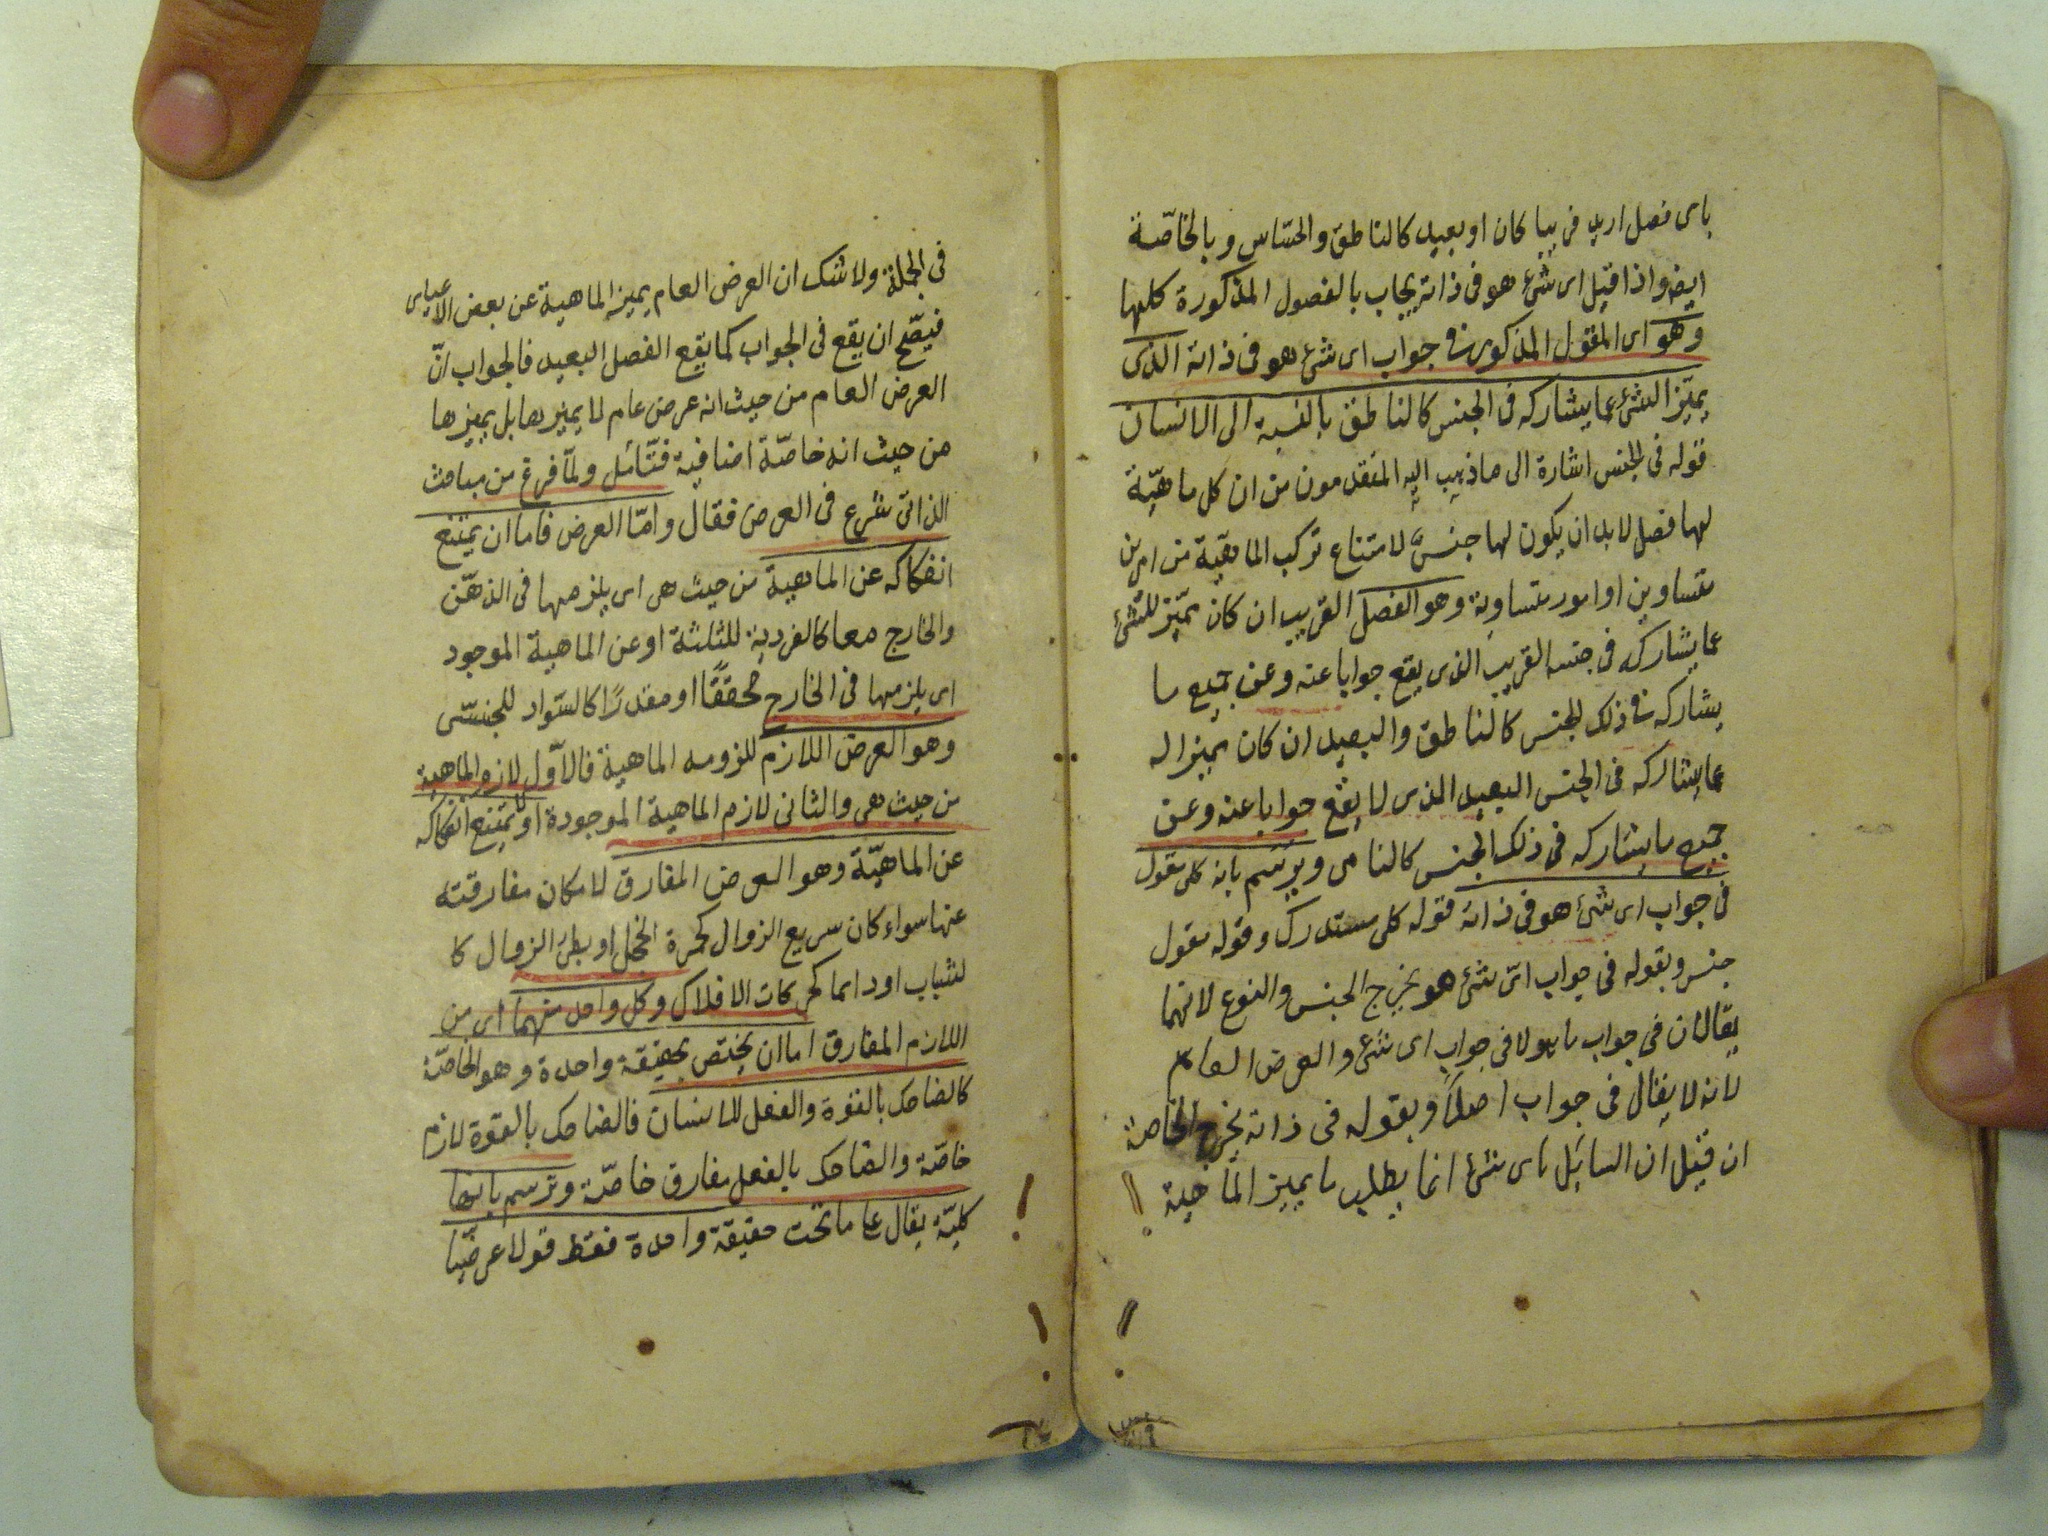 باى فصل اريد قريبا كان او بعيد كالناطق والحساس وبالخاصّة
ايض واذا قيل اى شئ هو فى ذاته يجاب بالفصول المذكورة كلها
وهو اى المقول المذكور فى جواب اى شئ هو فى ذاته الذى
يميّز الشئ عما يشاركه فى الجنس كالناطق بالنسبة الى الانسان
قوله فى الجنس اشارة الى ما ذهب اليه المتقدمون من ان كل ماهيّة
لها فصل لابد ان يكون لها جنس لامتناع تركب الماهيّة من امرين
متساوين او امور متساوية وهو الفصل القريب ان كان مميّز للشئ
عما يشاركه فى جنسه القريب الذى يقع جوابا عنه وعن جميع ما
يشاركه فى ذلك الجنس كالناطق والبعيد ان كان مميزا له
عما يشاركه فى الجنس البعيد الذى لا يقع جوابا عنه وعن
جميع ما يشاركه فى ذلك الجنس كالنامى ويرسم بانه كلى مقول
فى جواب اى شئ هو فى ذاته قوله كلى مستدرك وقوله مقول
جنس وبقوله فى جواب اىّ شئ هو يخرج الجنس والنوع لانهما
يقالان فى جواب ما هو لا فى جواب اى شئ والعرض العام
لانه لا يقال فى جواب اصلاً وبقوله فى ذاته يخرج الخاصة
ان قيل ان السائل باى شئ انما يطلب ما يميز الماهية
فى الجملة ولا شك ان العرض العام يميز الماهية عن بعض الاغيار
فيصّح ان يقع فى الجواب كما يقع الفصل البعيد فالجواب انّ
العرض العام من حيث انه عرض عام لا يميزها بل يميزها
من حيث انه خاصّة اضافية فتّامّل ولمّا فرغ من مباحث
الذاتى شرع فى العرض فقال وامّا العرض فاما ان يمتنع
انفكاكه عن الماهية من حيث هى اى يلزمها فى الذهن
والخارج معا كالفردية للثلثة او عن الماهية الموجود
اى يلزمها فى الخارج محققًا او مقدرًا كالسّواد للحبشى
وهو العرض اللازم للزومه الماهية فالاوّل لازم الماهية
من حيث هى والثانى لازم الماهية الموجودة او لا يمتنع انفكاكه
عن الماهيّة وهو العرض المفارق لامكان مفارقته
عنها سواء كان سريع الزوال كحمرة الخجل او بطئ الزوال كا
لشباب او دائما كحركات الافلاك وكل واحد منهما اى من
اللازم المفارق اما ان يختص بحقيقة واحدة وهو الخاصّة
كالضاحك بالقوة والفعل للانسان فالضاحك بالقوة لازم
خاصّة والضاحك بالفعل مفارق خاصّة وترسم بانها
كليّة يقال على ما تحت حقيقة واحدة فقط قولا عرضيّا